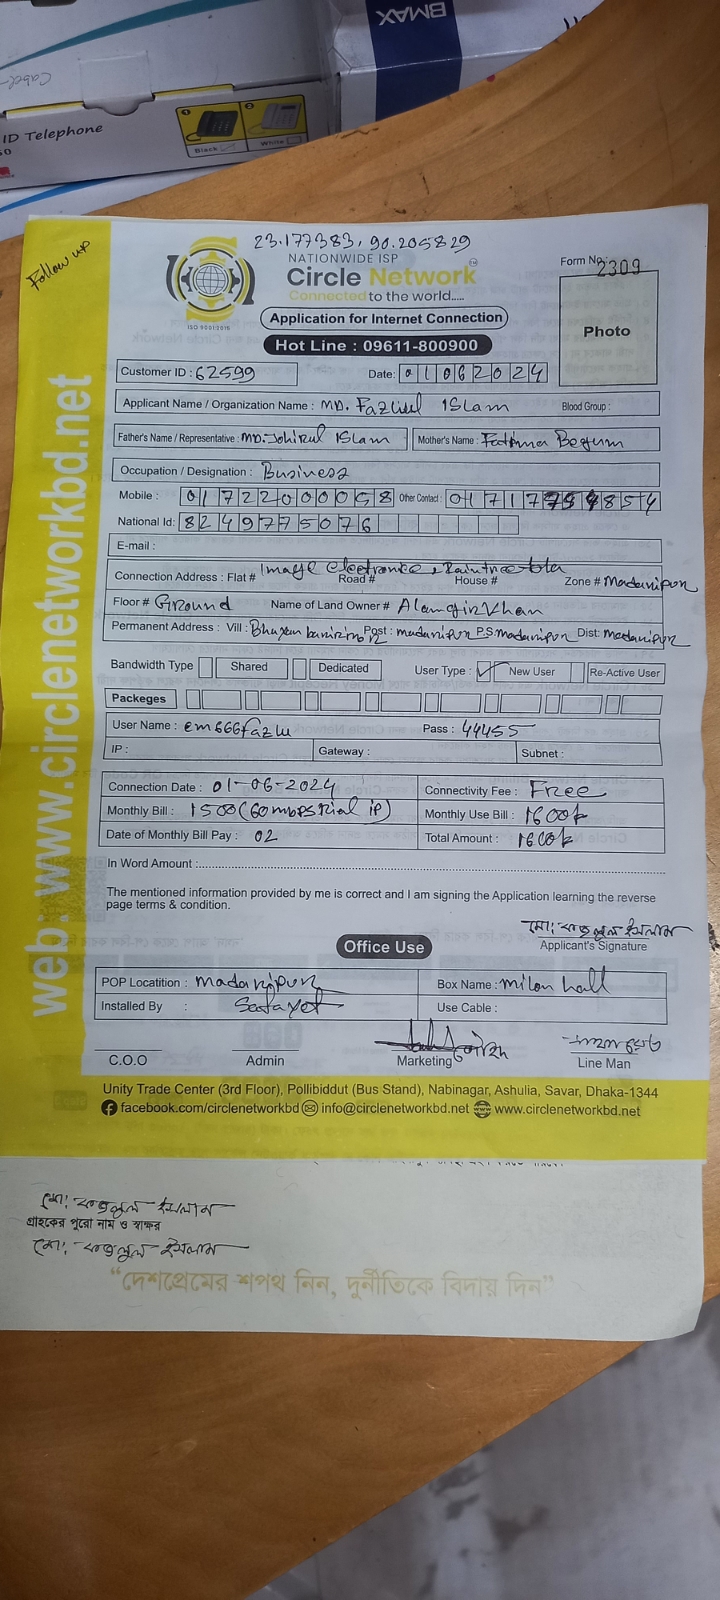 BMAX
Cabel-
ID Telephone
Black
White
23.177383, 90.205829
Follow up
NATIONWIDE ISP
Circle Network
Connected to the world.....
ISO 9001:2015
Form No: 2309
Photo
Application for Internet Connection
Hot Line : 09611-800900
Customer ID : 62599
Date: 01062024
Applicant Name / Organization Name : MD. Fazlul Islam
Blood Group :
Father's Name / Representative : MD. Johirul Islam
Mother's Name : Fatima Begum
Occupation / Designation : Business
Mobile : 01722000058
Other Contact : 01717
National Id: 8249775076
E-mail :
Connection Address : Flat # Image electronics, Road # House # Zone # Madaripur
Floor # Ground Name of Land Owner # Alamgir Khan
Permanent Address : Vill : Post : madaripur P.S. madaripur Dist: madaripur
Bandwidth Type Shared Dedicated User Type : ✓ New User Re-Active User
Packeges
User Name : em666fazlu Pass : 44455
IP : Gateway : Subnet :
Connection Date : 01-06-2024 Connectivity Fee : Free
Monthly Bill : 1500 (60 mbps Rial ip) Monthly Use Bill : 1600৳
Date of Monthly Bill Pay : 02 Total Amount : 1600৳
In Word Amount :
The mentioned information provided by me is correct and I am signing the Application learning the reverse
page terms & condition.
মো: ফজলুল ইসলাম
Applicant's Signature
Office Use
POP Locatition : Madaripur Box Name : milon hall
Installed By : Safayet Use Cable :
C.O.O Admin Marketing Line Man
web: www.circlenetworkbd.net
Unity Trade Center (3rd Floor), Pollibiddut (Bus Stand), Nabinagar, Ashulia, Savar, Dhaka-1344
facebook.com/circlenetworkbd info@circlenetworkbd.net www.circlenetworkbd.net
মো: ফজলুল ইসলাম
গ্রাহকের পুরো নাম ও স্বাক্ষর
মো: ফজলুল ইসলাম
“দেশপ্রেমের শপথ নিন, দুর্নীতিকে বিদায় দিন”